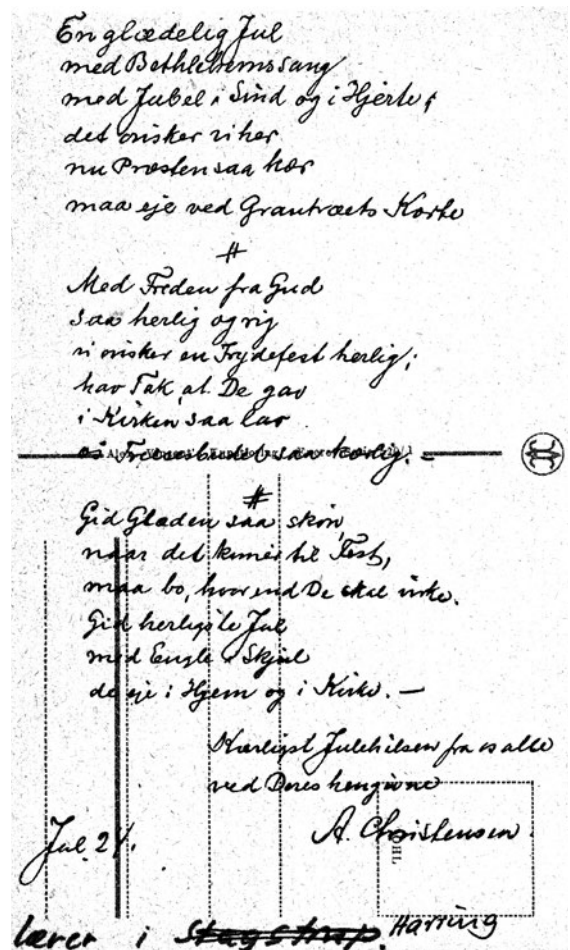 En glædelig Jul
med Bethlehemssang
med Jubel i Sind og i Hjerte;
det ønsker vi her
nu Præsten saa kær
maa eje ved Grantræets Kærte
#
Med Freden fra Gud
saa herlig og rig
vi ønsker en Frydefest herlig;
hav Tak, at De gav
i Kirken saa lav
os Fredesbudet saa kærlig. —
#
Gid Glæden saa skøn,
naar det kimer til Fest,
maa bo, hvor end De skal virke.
Gid herligste Jul
med Engle i Skjul
de eje i Hjem og i Kirke. —
Kærligst Julehilsen fra os alle
ved Deres hengivne
A. Christensen.
Jul 24.
lærer i Stagstrup. Harring